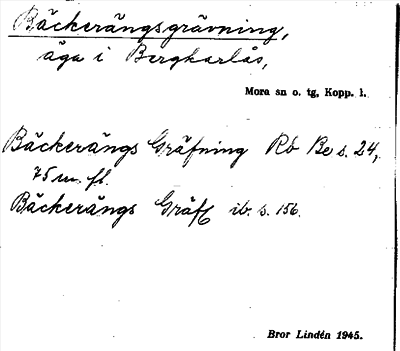 Bäckerängsgrävning,
äga i Bergkarlås,
Mora sn o. tg, Kopp. l.
Bäckerängs Gräfning Rö Be s. 24,
75 m. fl.
Bäckerängs Gräfn ib. s. 156.
Bror Lindén 1945.